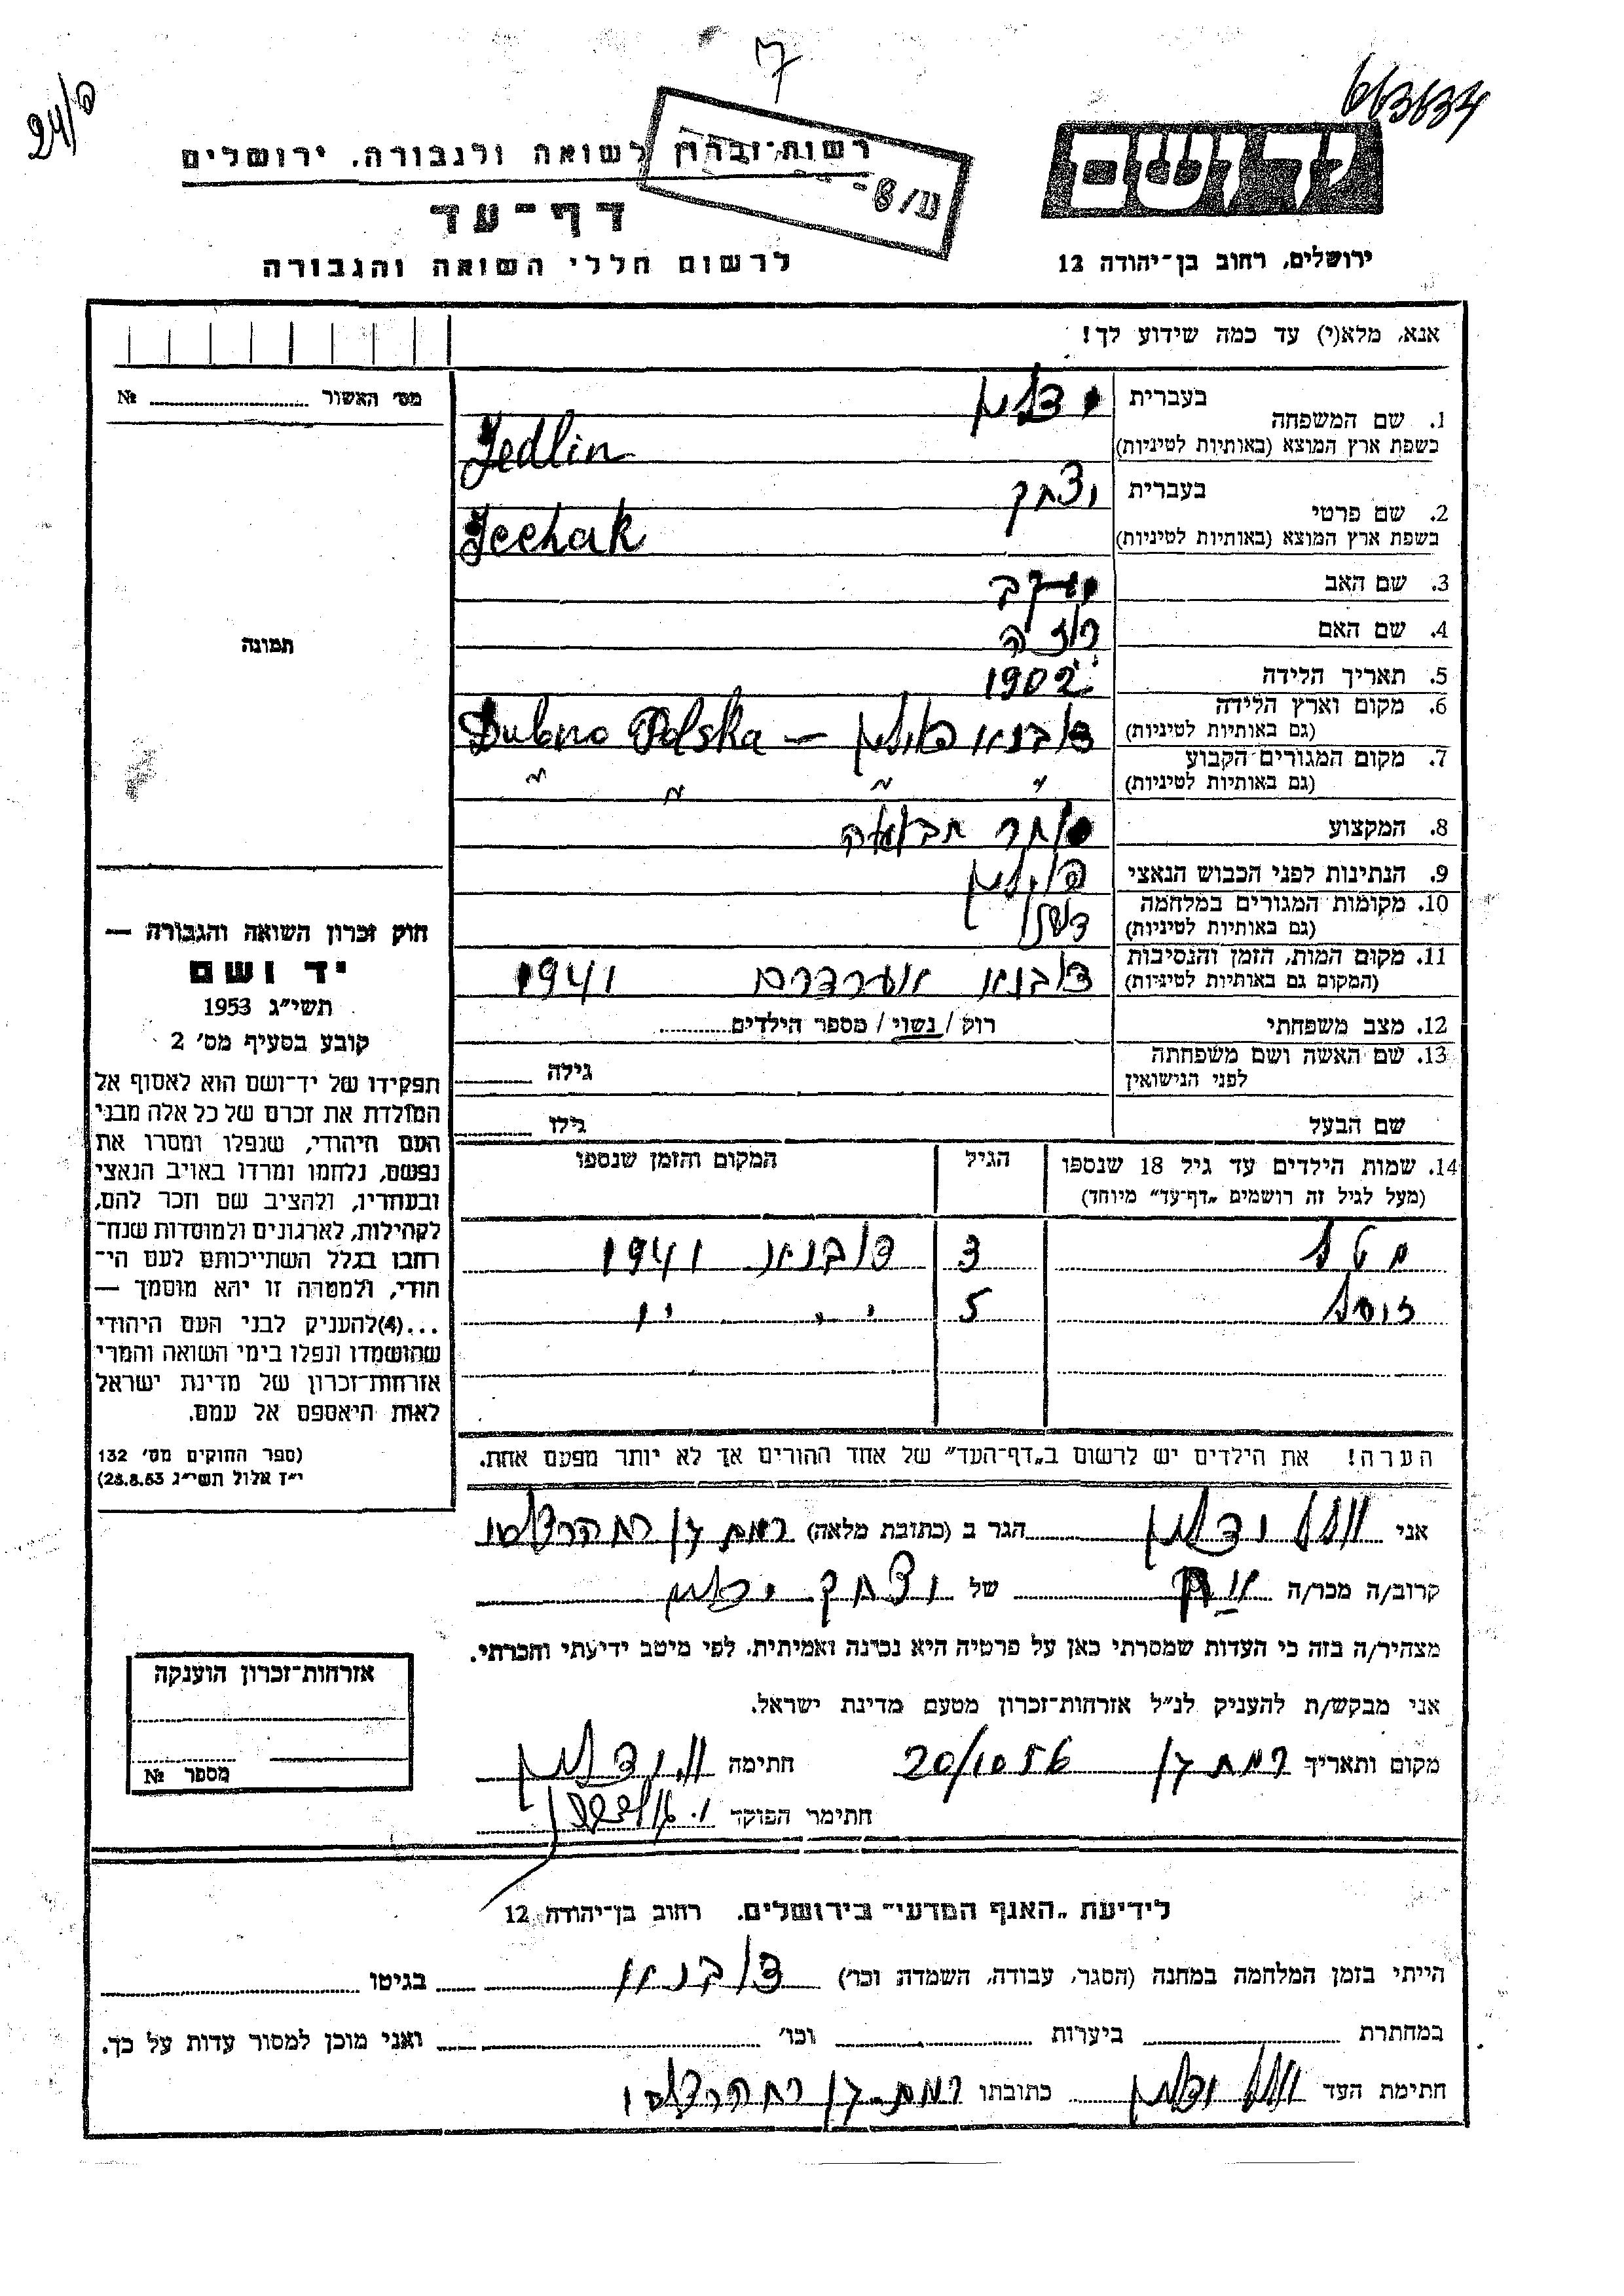 24/פ
7
663634
רשות־זכרון לשואה ולגבורה, ירושלים
דף־עד
לרשום חללי השואה והגבורה
ירושלים, רחוב בן־יהודה 12
אנא, מלא(י) עד כמה שידוע לך!
מס׳ האשור № 
1. שם המשפחה
בעברית ידלין
בשפת ארץ המוצא (באותיות לטיניות) Jedlin
2. שם פרטי
בעברית יצחק
בשפת ארץ המוצא (באותיות לטיניות) Jechak
3. שם האב
4. שם האם רוזה
5. תאריך הלידה 1902
6. מקום וארץ הלידה
(גם באותיות לטיניות) דובנא פולין — Dubno Polska
7. מקום המגורים הקבוע
(גם באותיות לטיניות) " " " "
8. המקצוע סוחר תבואה
9. הנתינות לפני הכבוש הנאצי פולין
10. מקומות המגורים במלחמה
(גם באותיות לטיניות)
11. מקום המות, הזמן והנסיבות
(המקום גם באותיות לטיניות) דובנא 1941
12. מצב משפחתי רוק / נשוי / מספר הילדים
13. שם האשה ושם משפחתה
לפני הנישואין גילה
שם הבעל גילו
14. שמות הילדים עד גיל 18 שנספו הגיל המקום והזמן שנספו
(מעל לגיל זה רושמים „דף־עד״ מיוחד)
3 דובנא 1941
5 " " "
הערה! את הילדים יש לרשום ב„דף־העד״ של אחד ההורים אך לא יותר מפעם אחת.
תמונה
חוק זכרון השואה והגבורה —
יד ושם
תשי״ג 1953
קובע בסעיף מס׳ 2
תפקידו של יד־ושם הוא לאסוף אל
המולדת את זכרם של כל אלה מבני
העם היהודי, שנפלו ומסרו את
נפשם, נלחמו ומרדו באויב הנאצי
ובעוזריו, ולהציב שם וזכר להם,
לקהילות, לארגונים ולמוסדות שנח־
רחבו בגלל השתייכותם לעם הי־
הודי, ולמטרה זו יהא מוסמך —
...(4)להעניק לבני העם היהודי
שהושמדו ונפלו בימי השואה והמרי
אזרחות־זכרון של מדינת ישראל
לאות היאספם אל עמם.
(ספר החוקים מס׳ 132
י״ז אלול תשי״ג 28.8.53)
אני ידלין הגר ב (כתובת מלאה) רמת גן
קרוב/ה מכר/ה אח של יצחק ידלין
מצהיר/ה בזה כי העדות שמסרתי כאן על פרטיה היא נכונה ואמיתית. לפי מיטב ידיעתי והכרתי.
אני מבקש/ת להעניק לנ״ל אזרחות־זכרון מטעם מדינת ישראל.
מקום ותאריך רמת גן 20/10 56 חתימה ידלין
חתימר הפוקד
אזרחות־זכרון הוענקה
מספר №
לידיעת „האגף המדעי״ בירושלים. רחוב בן־יהודה 12
הייתי בזמן המלחמה במחנה (הסגר, עבודה, השמדה וכו׳) דובנא בגיטו
במחתרת ביערות וכו׳ ואני מוכן למסור עדות על כך.
חתימת העד ידלין כתובתו רמת גן